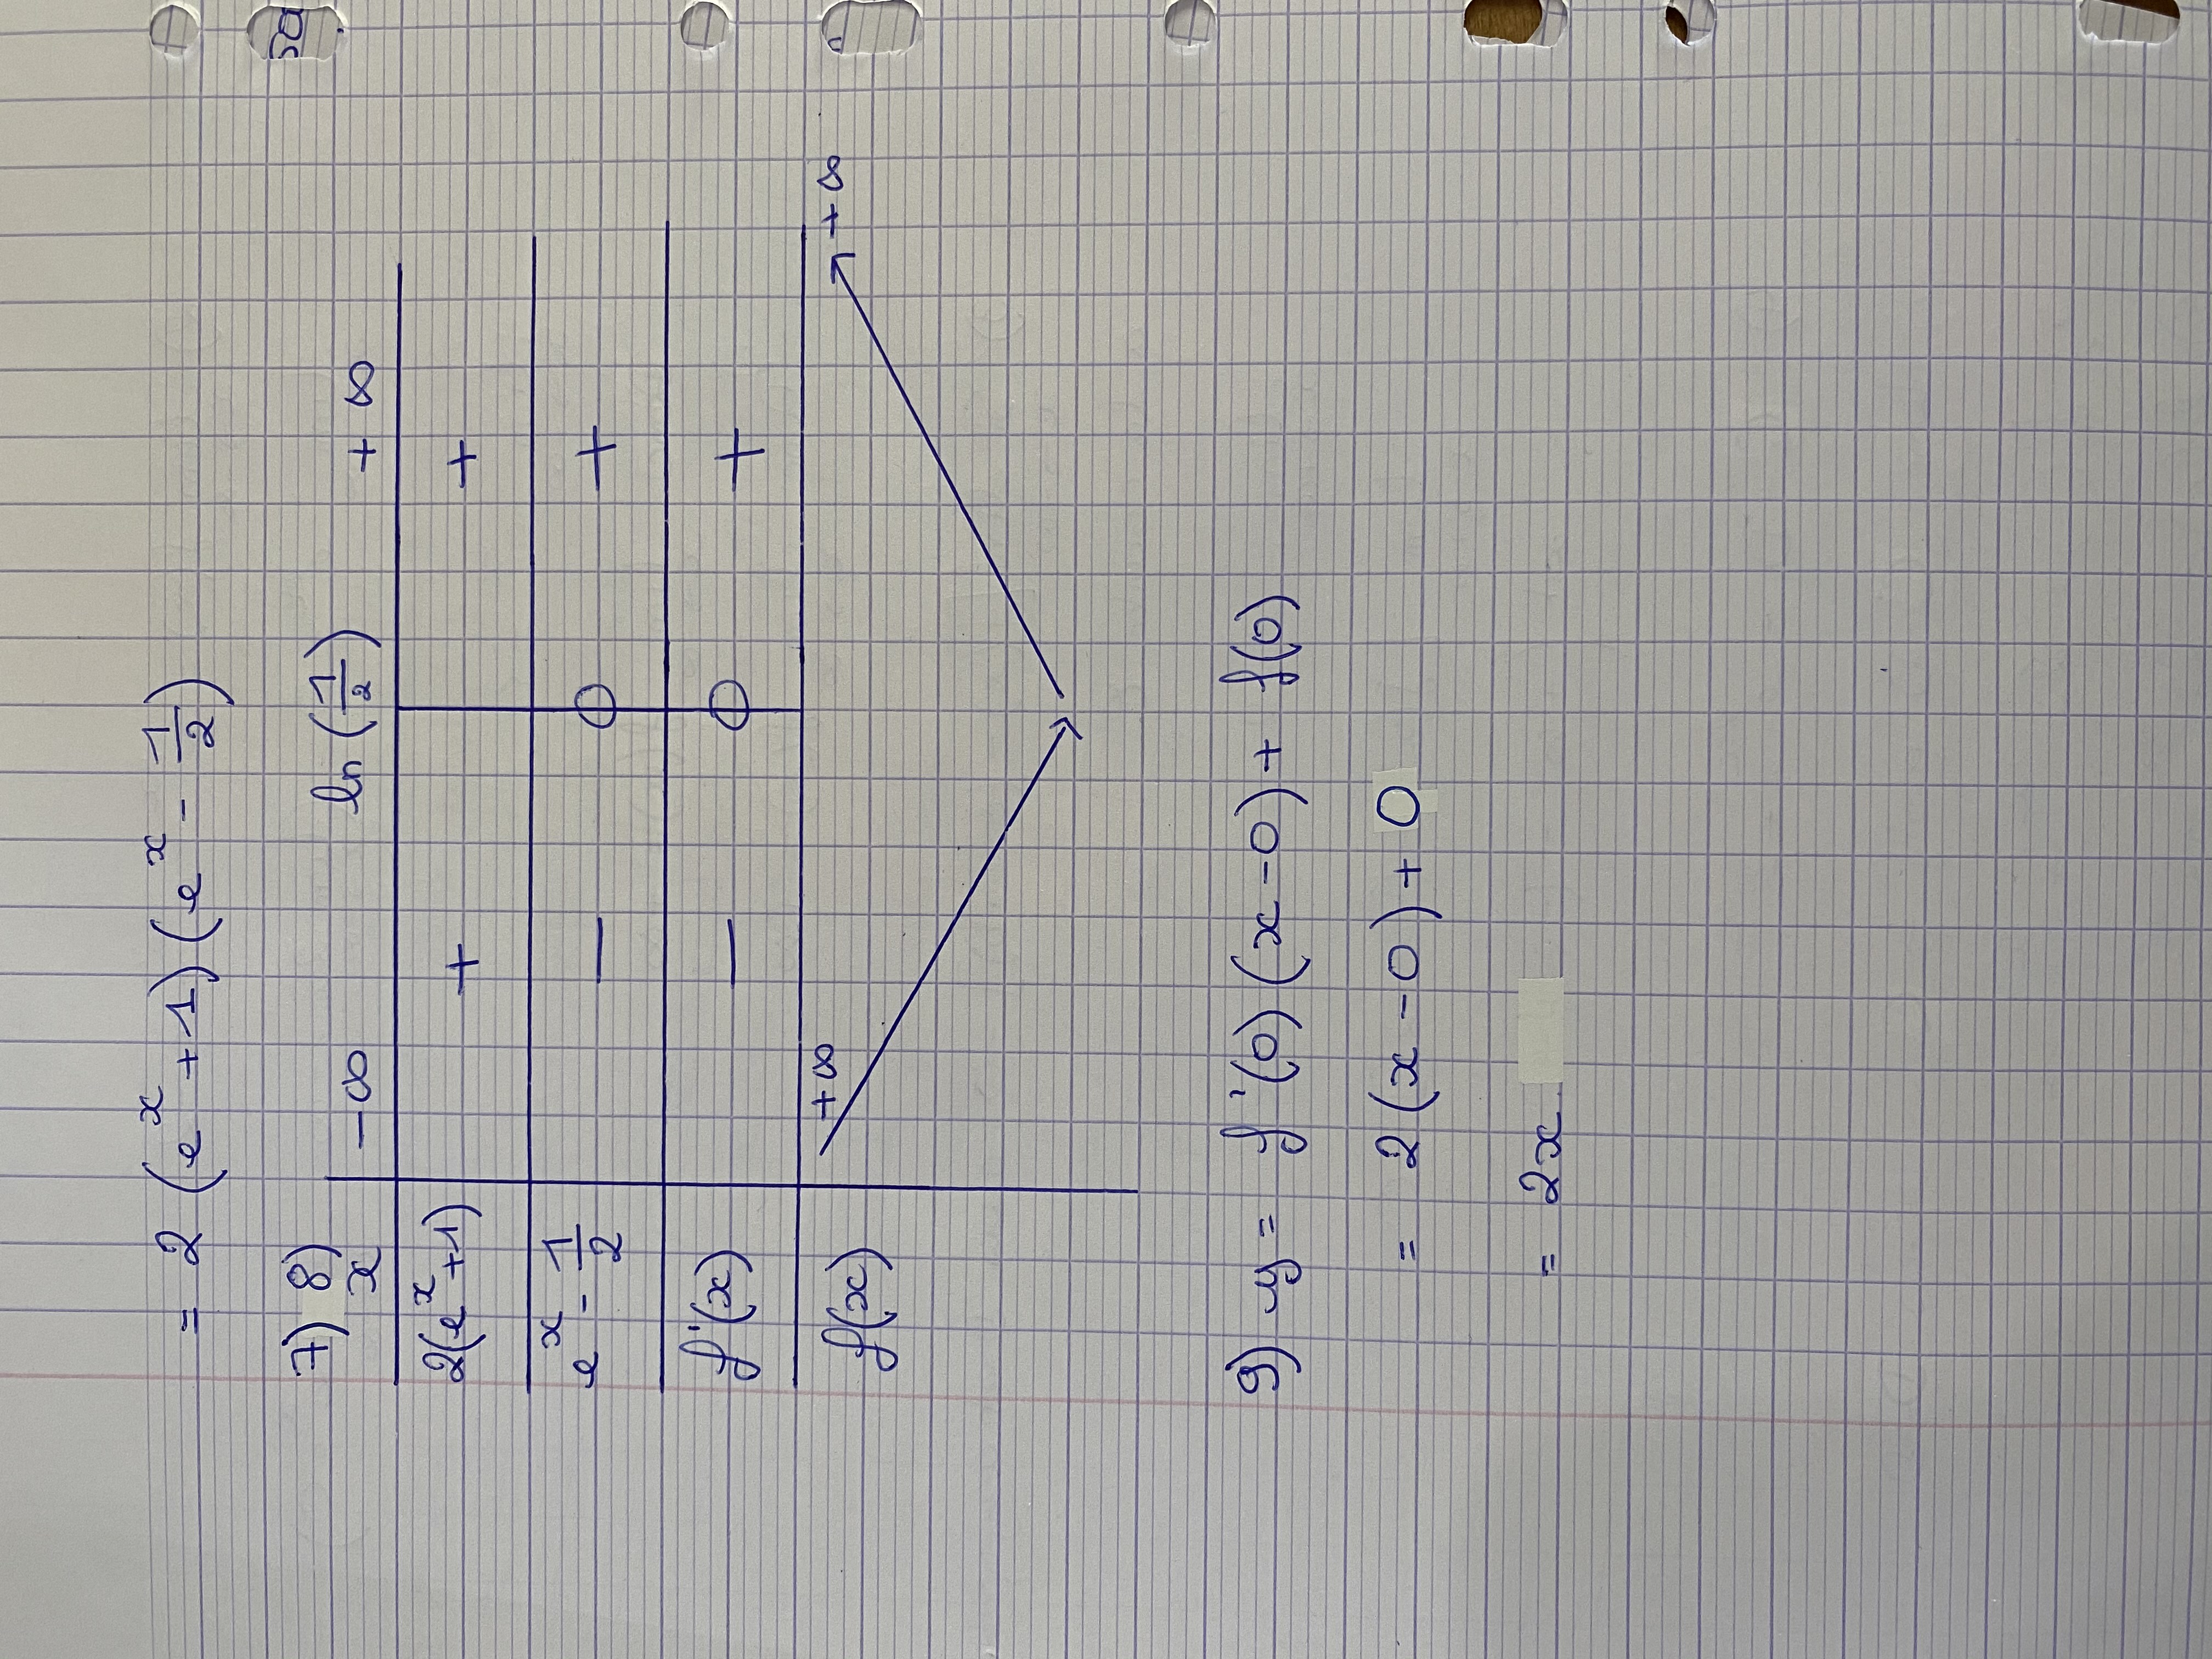 = 2 (e^x + 1) (e^x - 1/2)
7) 8)
x | -∞ ln(1/2) + ∞
2(e^x + 1) | + | +
e^x - 1/2 | - 0 +
f'(x) | - 0 +
f(x) | +∞ +∞
9) y = f'(0) (x - 0) + f(0)
= 2 (x - 0) + 0
= 2x